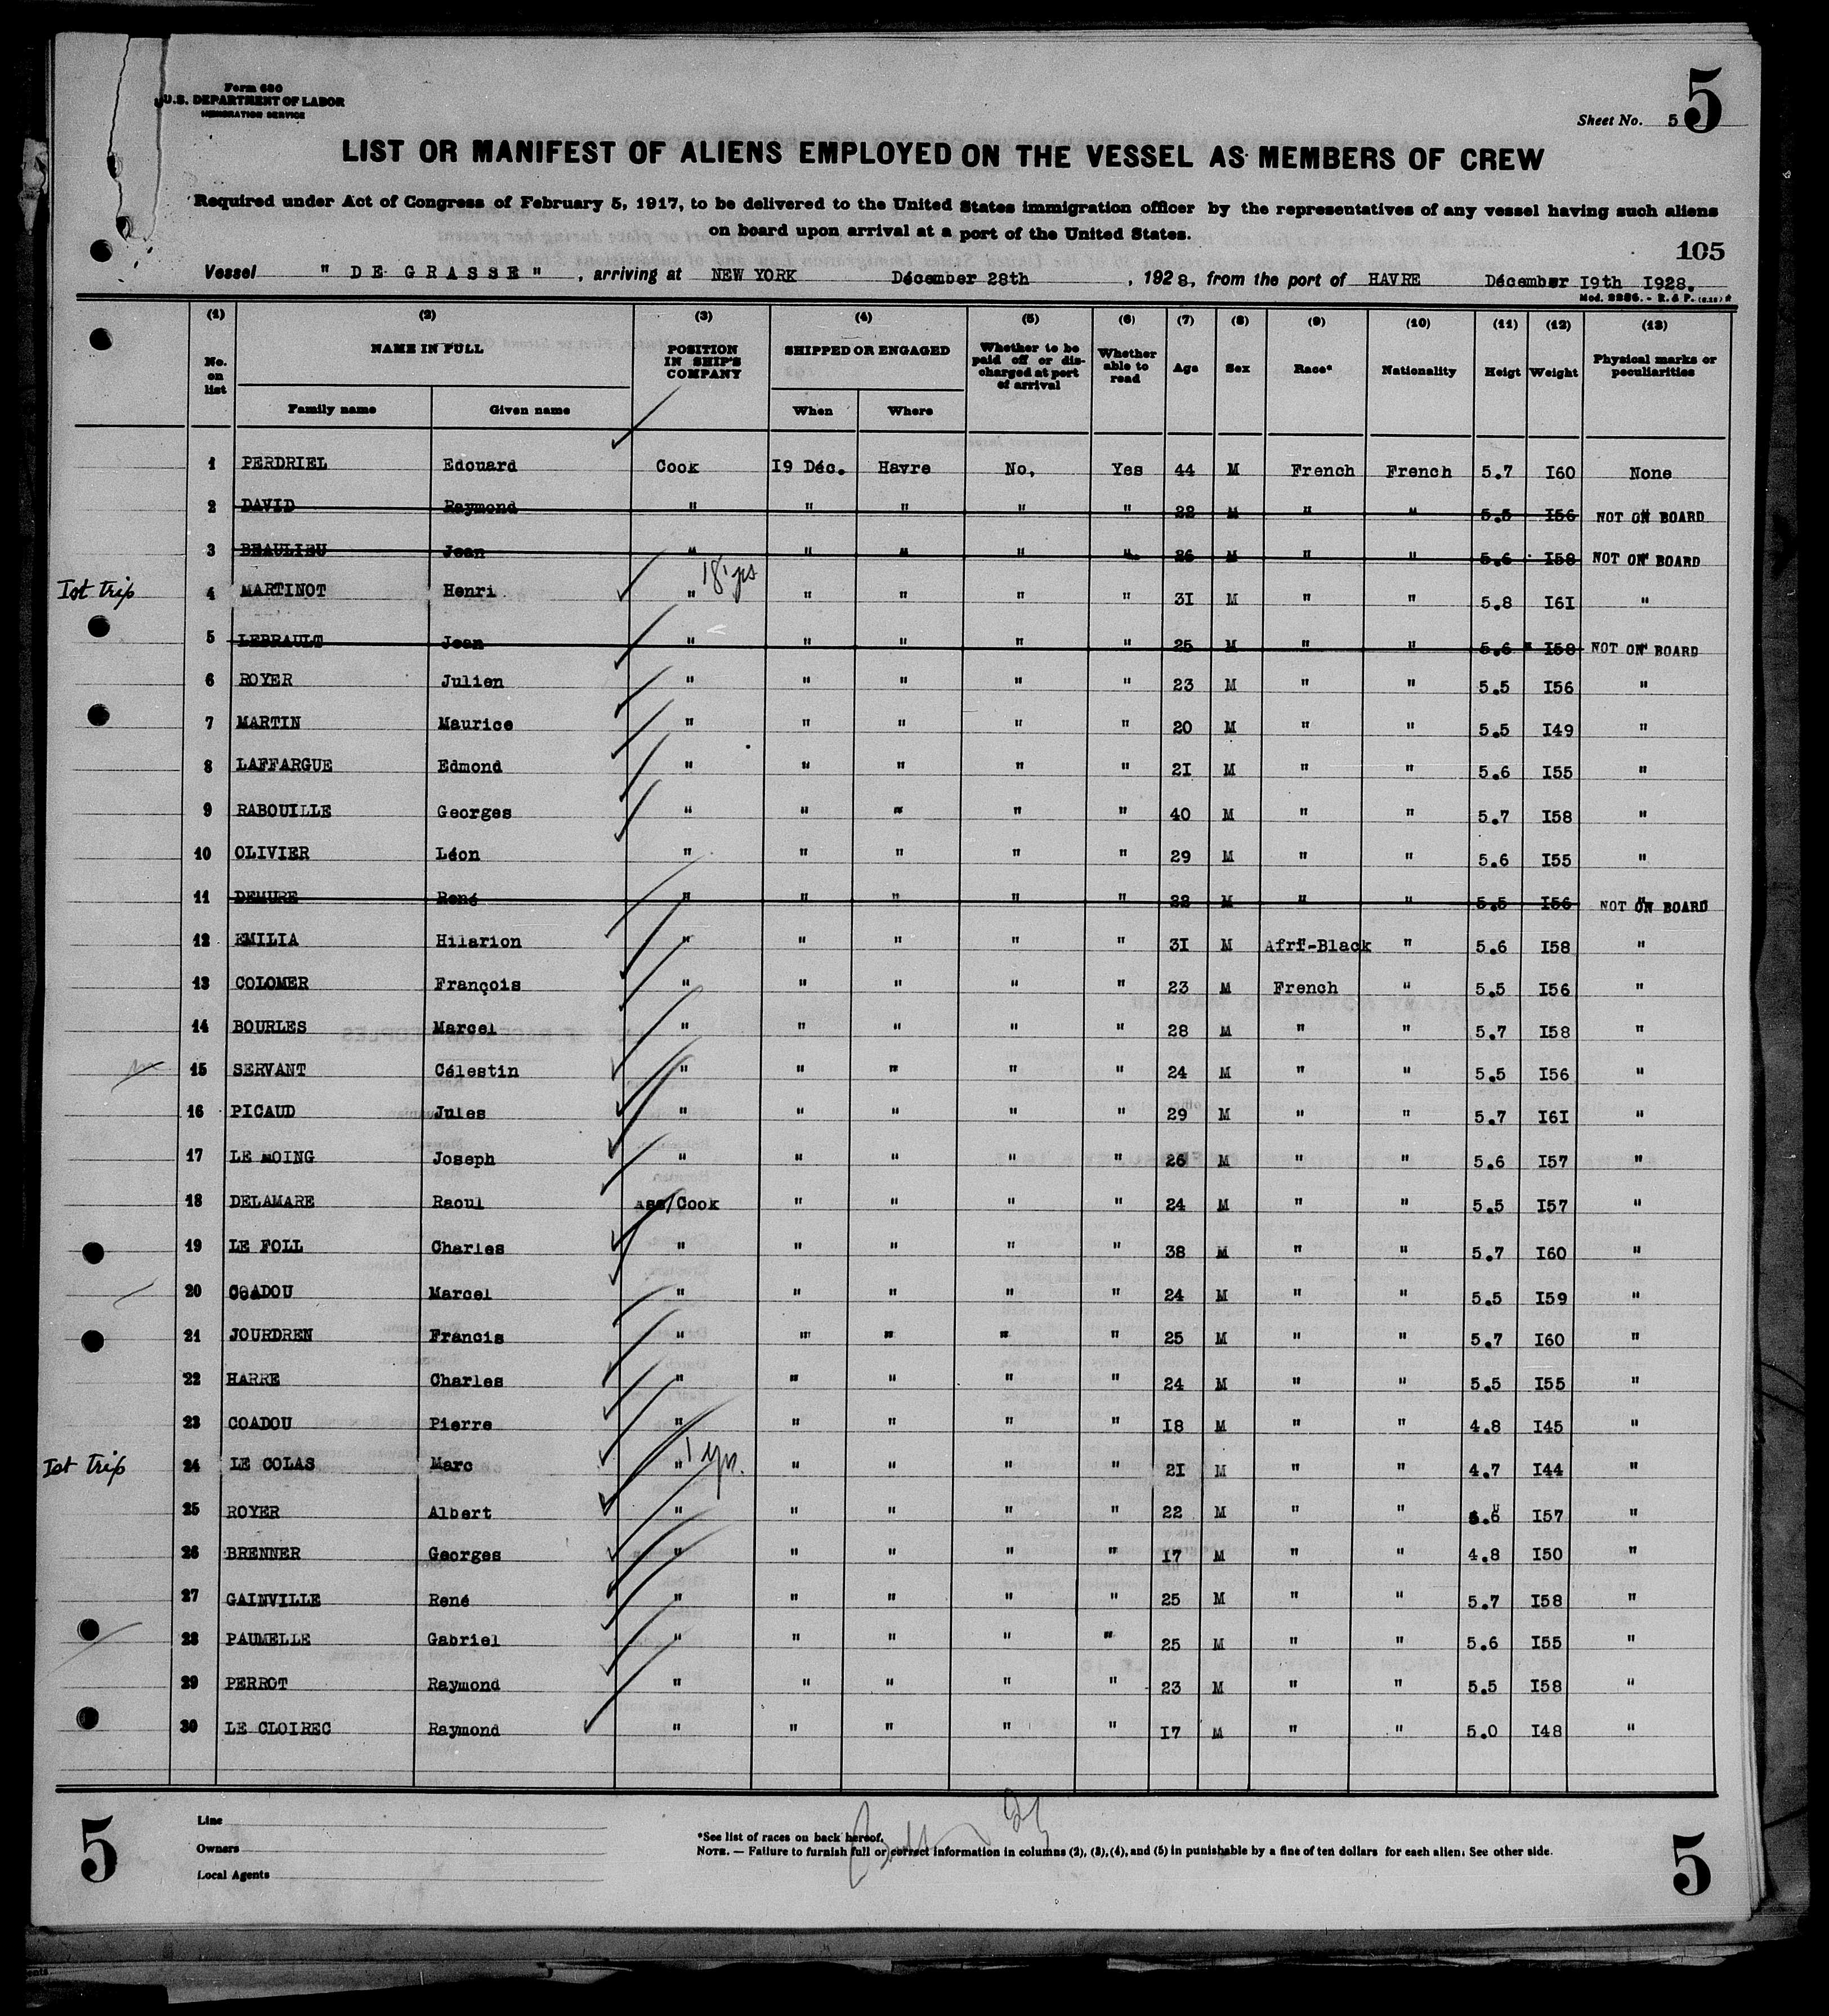 Form 680
U.S. DEPARTMENT OF LABOR
IMMIGRATION SERVICE
Sheet No. 5
5
LIST OR MANIFEST OF ALIENS EMPLOYED ON THE VESSEL AS MEMBERS OF CREW
Required under Act of Congress of February 5, 1917, to be delivered to the United States immigration officer by the representatives of any vessel having such aliens
on board upon arrival at a port of the United States.
105
Vessel " DE GRASSE " , arriving at NEW YORK Décember 28th , 1928, from the port of HAVRE Décember I9th I928.
Mod. 2286. - R. & P. (6.28)
(1) (2) (3) (4) (5) (6) (7) (8) (9) (10) (11) (12) (13)
No. on list NAME IN FULL POSITION IN SHIP'S COMPANY SHIPPED OR ENGAGED Whether to be paid off or discharged at port of arrival Whether able to read Age Sex Race* Nationality Heigt Weight Physical marks or peculiarities
Family name Given name When Where
1 PERDRIEL Edouard Cook I9 Déc. Havre No, Yes 44 M French French 5.7 I60 None
2 DAVID Raymond " " " " " 22 M " " 5.5 I56 " NOT ON BOARD
3 BEAULIEU Jean " " " " " 26 M " " 5.6 I58 " NOT ON BOARD
Ist trip 4 MARTINOT Henri " 18 yrs " " " " 3I M " " 5.8 I6I "
5 LEBRAULT Jean " " " " " 25 M " " 5.6 I58 " NOT ON BOARD
6 ROYER Julien " " " " " 23 M " " 5.5 I56 "
7 MARTIN Maurice " " " " " 20 M " " 5.5 I49 "
8 LAFFARGUE Edmond " " " " " 2I M " " 5.6 I55 "
9 RABOUILLE Georges " " " " " 40 M " " 5.7 I58 "
10 OLIVIER Léon " " " " " 29 M " " 5.6 I55 "
11 DEMURE René " " " " " 22 M " " 5.5 I56 " NOT ON BOARD
12 EMILIA Hilarion " " " " " 3I M Afri-Black " 5.6 I58 "
13 COLOMER François " " " " " 23 M French " 5.5 I56 "
14 BOURLES Marcel " " " " " 28 M " " 5.7 I58 "
15 SERVANT Célestin " " " " " 24 M " " 5.5 I56 "
16 PICAUD Jules " " " " " 29 M " " 5.7 I6I "
17 LE MOING Joseph " " " " " 26 M " " 5.6 I57 "
18 DELAMARE Raoul Ass/Cook " " " " 24 M " " 5.5 I57 "
19 LE FOLL Charles " " " " " 38 M " " 5.7 I60 "
20 COADOU Marcel " " " " " 24 M " " 5.5 I59 "
21 JOURDREN Francis " " " " " 25 M " " 5.7 I60 "
22 HARRE Charles " " " " " 24 M " " 5.5 I55 "
23 COADOU Pierre " " " " " I8 M " " 4.8 I45 "
Ist trip 24 LE COLAS Marc " 1 yr. " " " " 2I M " " 4.7 I44 "
25 ROYER Albert " " " " " 22 M " " 5.6 I57 "
26 BRENNER Georges " " " " " I7 M " " 4.8 I50 "
27 GAINVILLE René " " " " " 25 M " " 5.7 I58 "
28 PAUMELLE Gabriel " " " " " 25 M " " 5.6 I55 "
29 PERROT Raymond " " " " " 23 M " " 5.5 I58 "
30 LE CLOIREC Raymond " " " " " I7 M " " 5.0 I48 "
5
Line
Owners
Local Agents
*See list of races on back hereof.
NOTE. — Failure to furnish full or correct information in columns (2), (3), (4), and (5) in punishable by a fine of ten dollars for each alien. See other side.
5